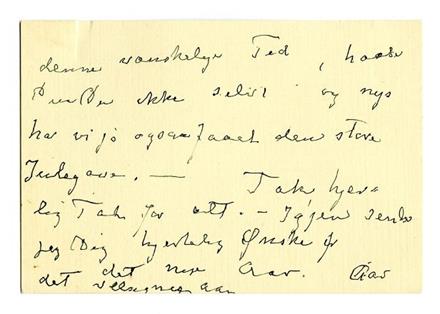 denne vanskelige Tid, haabe
ikke selv! og nys
har vi jo ogsaa faaet den store
Julegave. — Tak hjer-
lig Tak for alt. — Igjen sender
jeg Dig hjertelig Ønske for
det nye Aar.